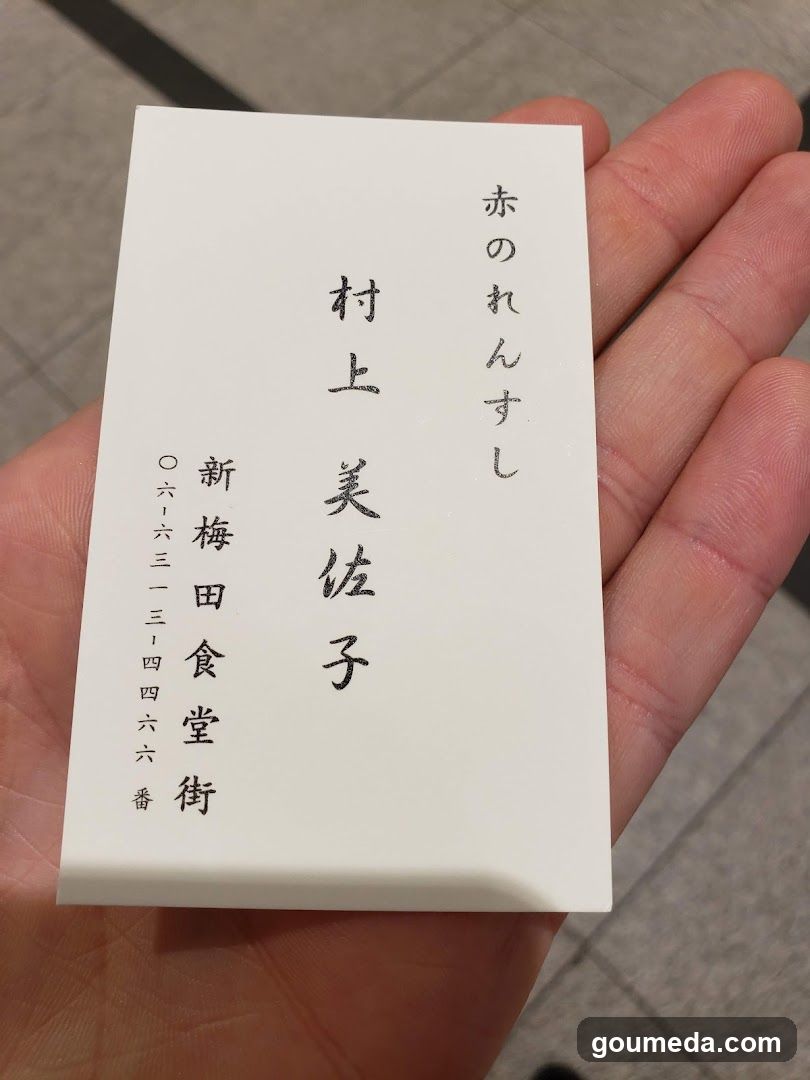 赤のれんすし
村上 美佐子
新梅田食堂街
〇六-六三一三-四四六六 番
goumeda.com